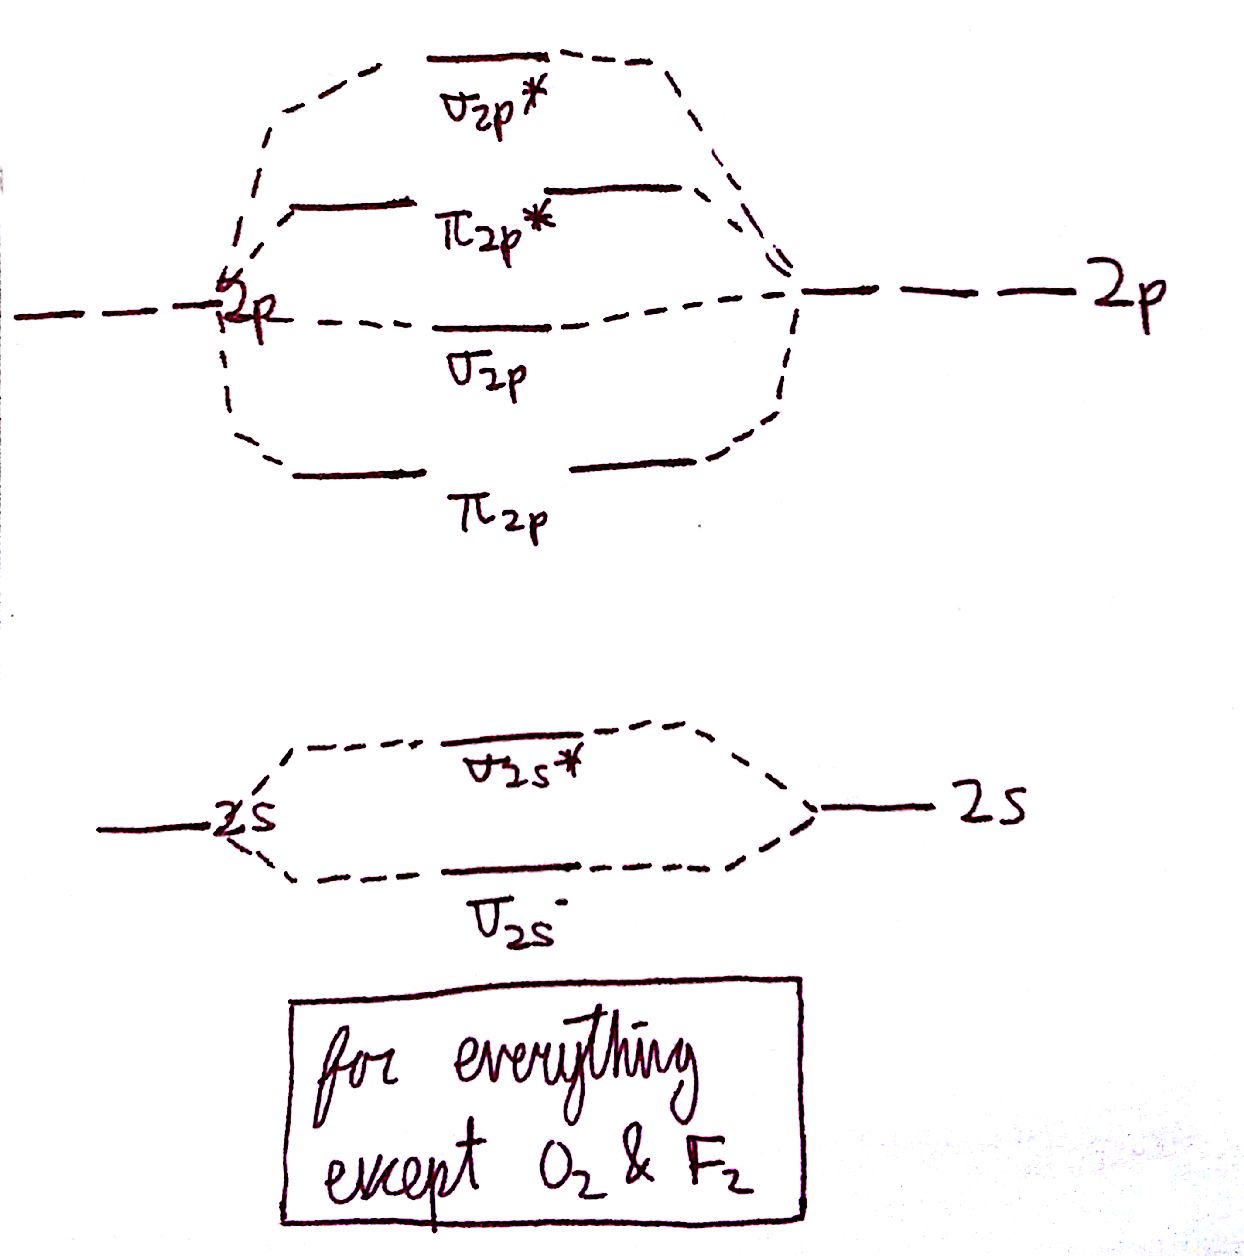 σ₂ₚ*
π₂ₚ*
2p
2p
σ₂ₚ
π₂ₚ
σ₂ₛ*
2s
2s
σ₂ₛ
for everything
except O₂ & F₂